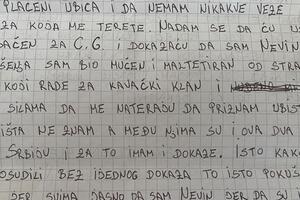 PLAĆENI UBICA I DA NEMAM NIKAKVE VEZE
ZA KOGA ME TERETE. NADAM SE DA ĆU
ZA C.G. I DOKAZAĆU DA SAM NEVIN
SAM BIO MUČEN I MALTRETIRAN OD
KOJI RADE ZA KAVAČKI KLAN I
SILAMA DA ME NATERAJU DA PRIZNAM
NE ZNAM A MEĐU NJIMA SU I OVA DVA
SRBIJU I ZA TO IMAM I DOKAZE. ISTO
OSUDILI BEZ IJEDNOG DOKAZA TO ISTO
SVIMA JASNO DA SAM NEVIN JER DA SU